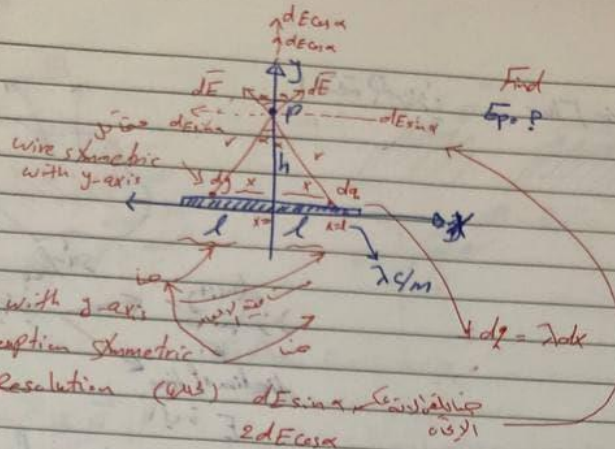 dE cos α
dE cos α
y
Find
dE
dE
P
E_P = ?
dE sin α
dE sin α
α
r
r
h
wire symmetric
with y-axis
dq
x
x
dq
x
x=0
x=l
l
l
λ C/m
with y-axis
symmetric
dq = λdx
Resolution
dE sin α
2dE cos α